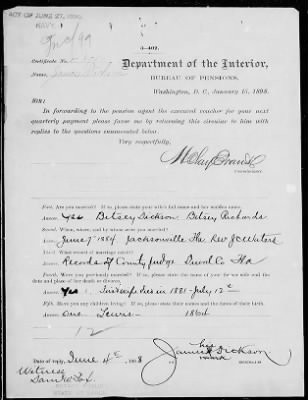 ACT OF JUNE 27, 1890.
NAVY.
3-402.
Certificate No.
Name, James Dickson
Department of the Interior,
BUREAU OF PENSIONS,
Washington, D. C., January 15, 1898.
SIR:
In forwarding to the pension agent the executed voucher for your next
quarterly payment please favor me by returning this circular to him with
replies to the questions enumerated below.
Very respectfully,
H. Clay Evans
Commissioner.
First. Are you married? If so, please state your wife's full name and her maiden name.
Answer. Yes Betsey Dickson Betsey Richards
Second. When, where, and by whom were you married?
Answer. June 7th 1884 Jacksonville Fla Rev J C Waters
Third. What record of marriage exists?
Answer. Records of County Judge Duval Co Fla
Fourth. Were you previously married? If so, please state the name of your former wife and the date and
place of her death or divorce.
Answer. Yes. First wife died in 1881 July 12th
Fifth. Have you any children living? If so, please state their names and the dates of their birth.
Answer. One Lewis 1864
12
Date of reply, June 4th, 1898
his
James X Dickson
mark
Witness